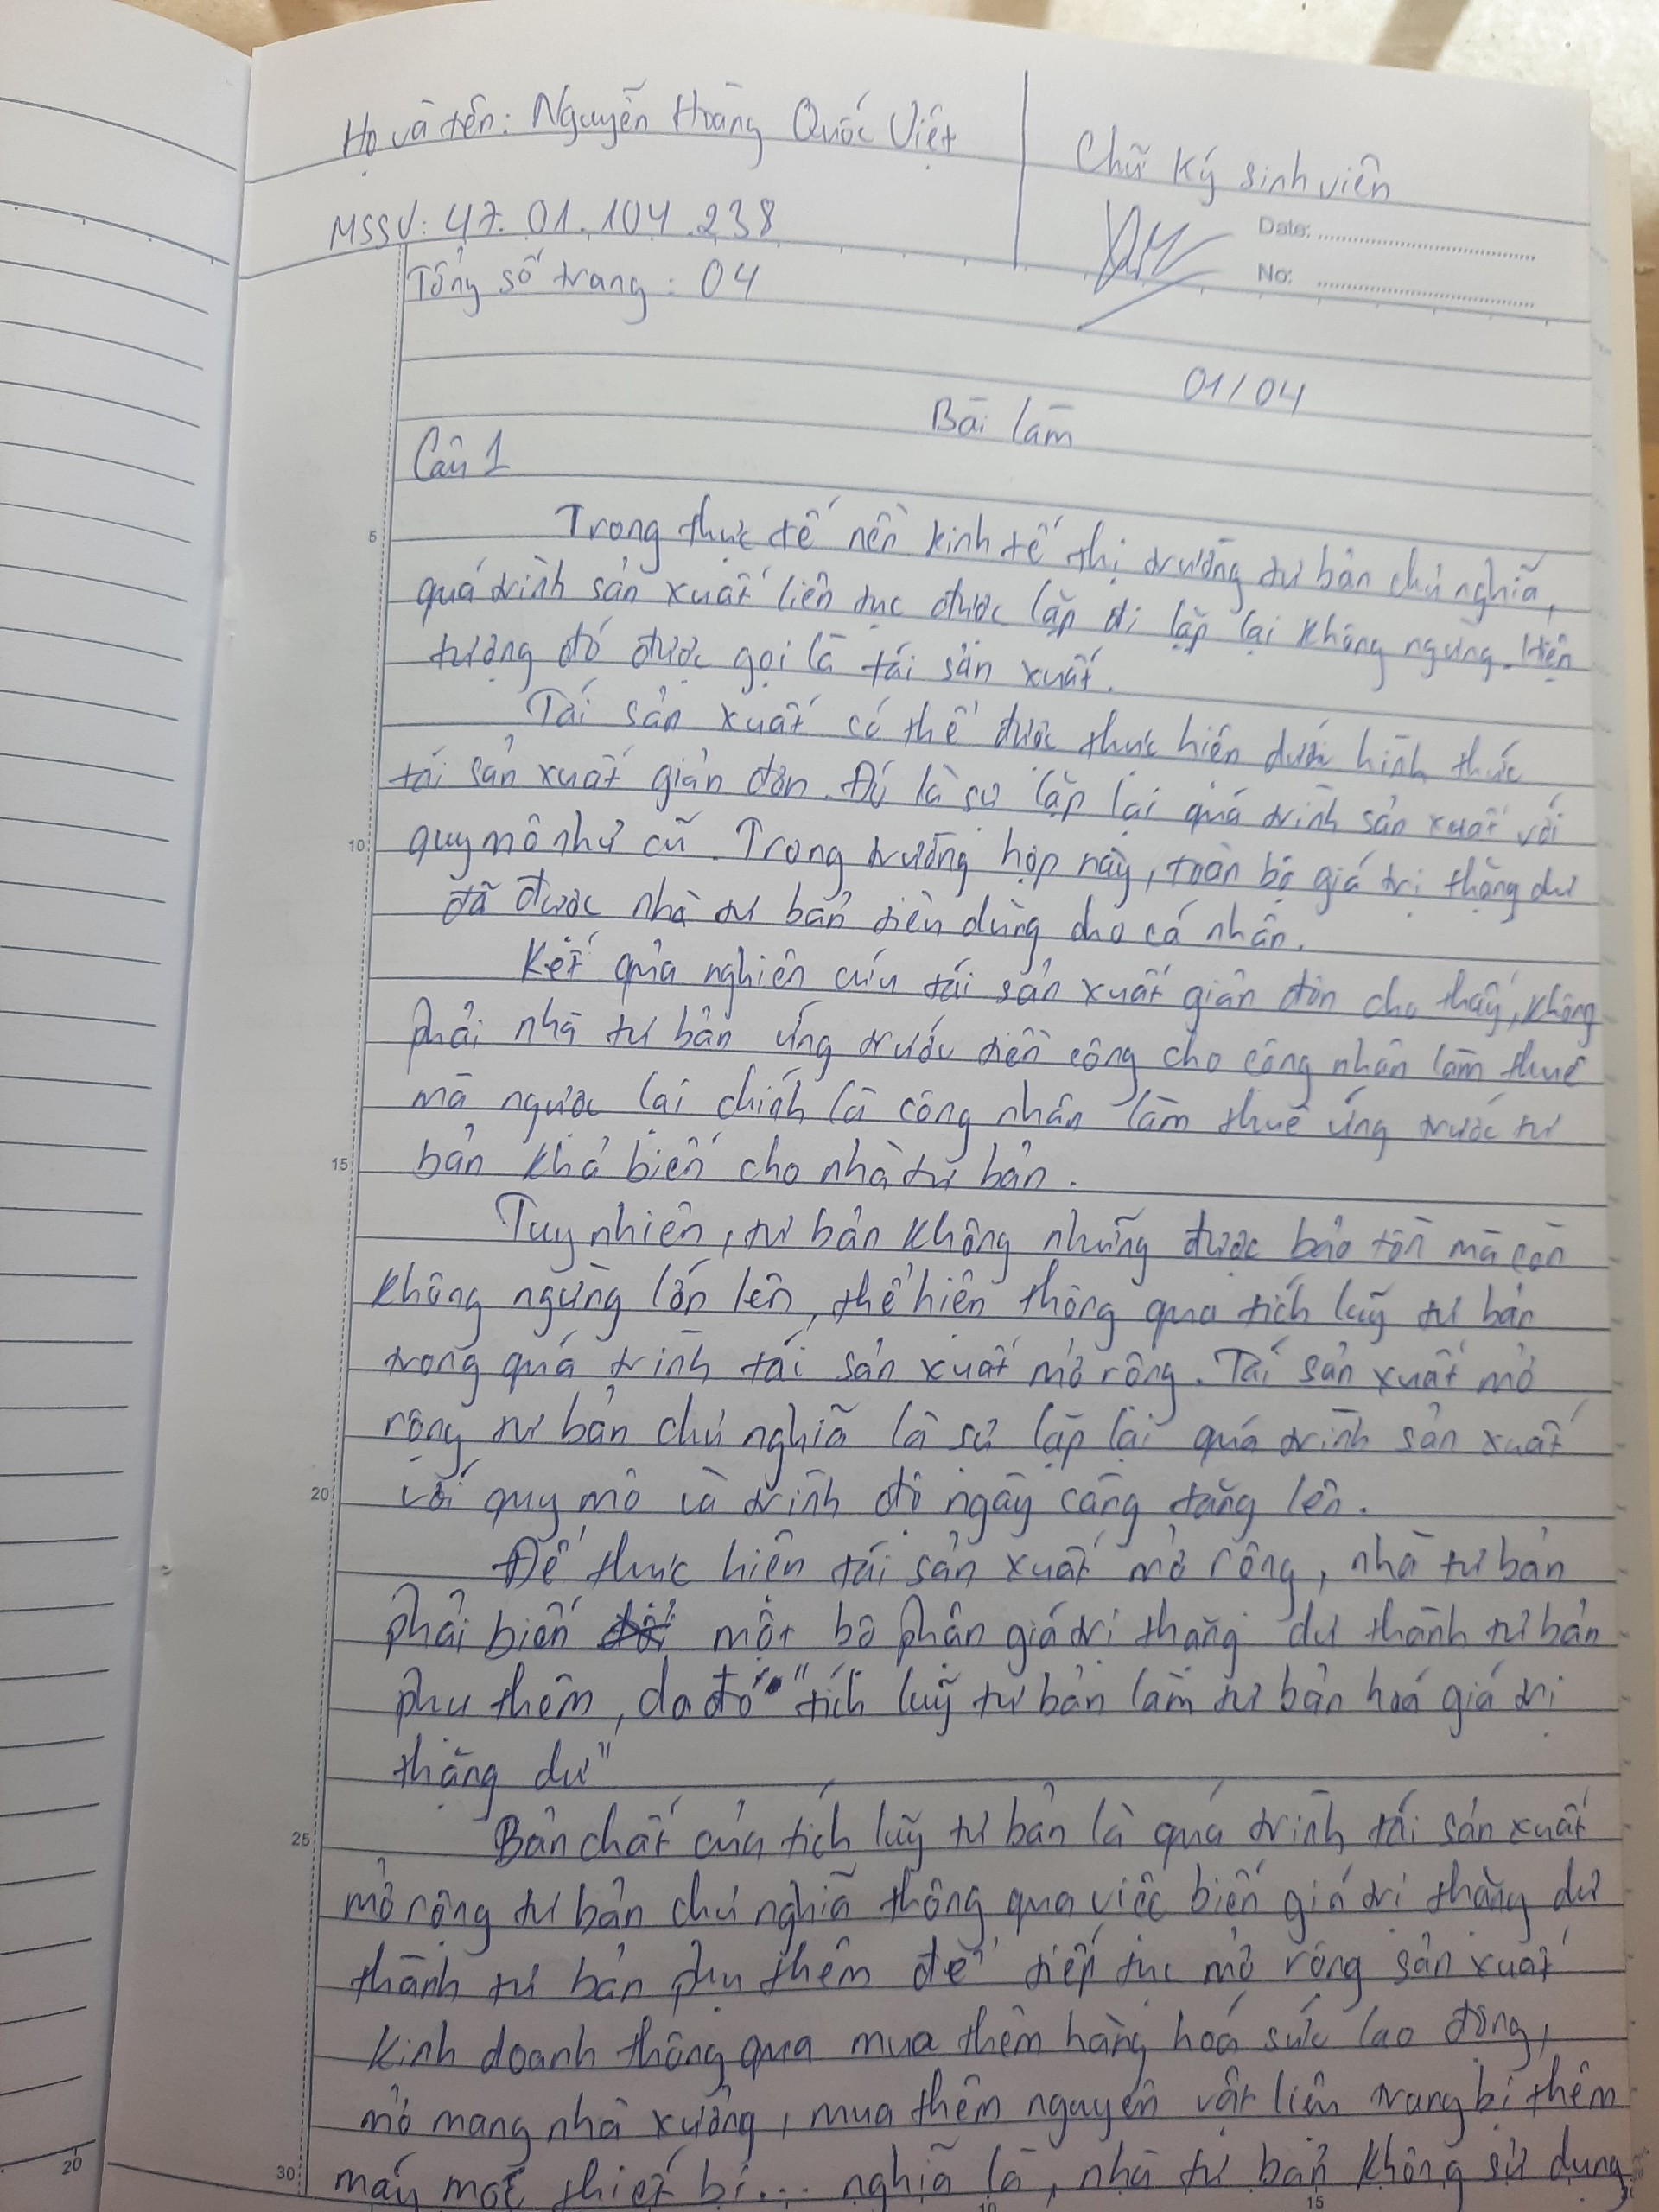 Họ và tên: Nguyễn Hoàng Quốc Việt
Chữ ký sinh viên
MSSV: 47.01.104.238
Date:
No:
Tổng số trang: 04
01/04
Bài làm
Câu 1
5
Trong thực tế nền kinh tế thị trường tư bản chủ nghĩa,
quá trình sản xuất liên tục được lặp đi lặp lại không ngưng. Hiện
tượng đó được gọi là tái sản xuất.
Tái sản xuất có thể được thực hiện dưới hình thức
tái sản xuất giản đơn. Đó là sự lặp lại quá trình sản xuất với
10
quy mô như cũ. Trong trường hợp này, toàn bộ giá trị thặng dư
đã được nhà tư bản tiêu dùng cho cá nhân.
Kết quả nghiên cứu tái sản xuất giản đơn cho thấy, không
phải nhà tư bản ứng trước tiền công cho công nhân làm thuê
mà ngược lại chính là công nhân làm thuê ứng trước tư
15
bản khả biến cho nhà tư bản.
Tuy nhiên, tư bản không những được bảo tồn mà còn
không ngừng lớn lên, thể hiện thông qua tích luỹ tư bản
trong quá trình tái sản xuất mở rộng. Tái sản xuất mở
rộng tư bản chủ nghĩa là sự lặp lại quá trình sản xuất
20
với quy mô và trình độ ngày càng tăng lên.
Để thực hiện tái sản xuất mở rộng, nhà tư bản
phải biến một bộ phận giá trị thặng dư thành tư bản
phụ thêm, do đó "tích luỹ tư bản làm tư bản hoá giá trị
thặng dư"
25
Bản chất của tích luỹ tư bản là quá trình tái sản xuất
mở rộng tư bản chủ nghĩa thông qua việc biến giá trị thặng dư
thành tư bản phụ thêm để tiếp tục mở rộng sản xuất
kinh doanh thông qua mua thêm hàng hoá sức lao động,
mở mang nhà xưởng, mua thêm nguyên vật liệu trang bị thêm
30
máy móc thiết bị... nghĩa là, nhà tư bản không sử dụng
20
10
15